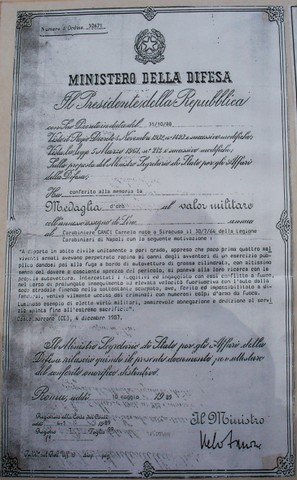 Numero d'Ordine 10471
MINISTERO DELLA DIFESA
Il Presidente della Repubblica
con Suo Decreto in data del 31/10/88
Visto il Regio Decreto 4 Novembre 1932, n° 1423 e successive modifiche;
Vista la legge 5 Marzo 1961, n° 212 e successive modifiche;
Sulla proposta del Ministro Segretario di Stato per gli Affari
della Difesa;
Ha conferito alla memoria la
Medaglia d'oro al valor militare
coll'annesso assegno di Lire annue
Carabiniere Carmelo nato a Siracusa il della Legione
Carabinieri di Napoli con la seguente motivazione :
"A diporto in abito civile unitamente a pari grado, appreso che poco prima quattro mal-
viventi armati avevano perpetrato rapina ai danni degli avventori di un esercizio pub-
blico dandosi poi alla fuga a bordo di autovettura di grossa cilindrata, con altissimo
senso del dovere e cosciente sprezzo del pericolo, si poneva alla loro ricerca con la
propria autovettura. Intercettati i fuggitivi ed ingaggiato con essi conflitto a fuoco,
nel corso di prolungato inseguimento ad elevata velocità fuoriusciva con l'auto dalla
sede stradale finendo nella sottostante scarpata, ove, ferito ed impossibilitato a di-
fendersi, veniva vilmente ucciso dai criminali con numerosi colpi d'arma da fuoco.
Luminoso esempio di elette virtù militari, ammirevole abnegazione e dedizione al servi-
zio spinta fino all'estremo sacrificio".
(CE), 4 dicembre 1987.
Il Ministro Segretario di Stato per gli Affari della
Difesa rilascia quindi il presente documento per attestare
del conferito onorifico distintivo.
Roma, addì 10 maggio 1989
Registrato alla Corte dei Conti
addì 1989
Registro Foglio
Il Ministro